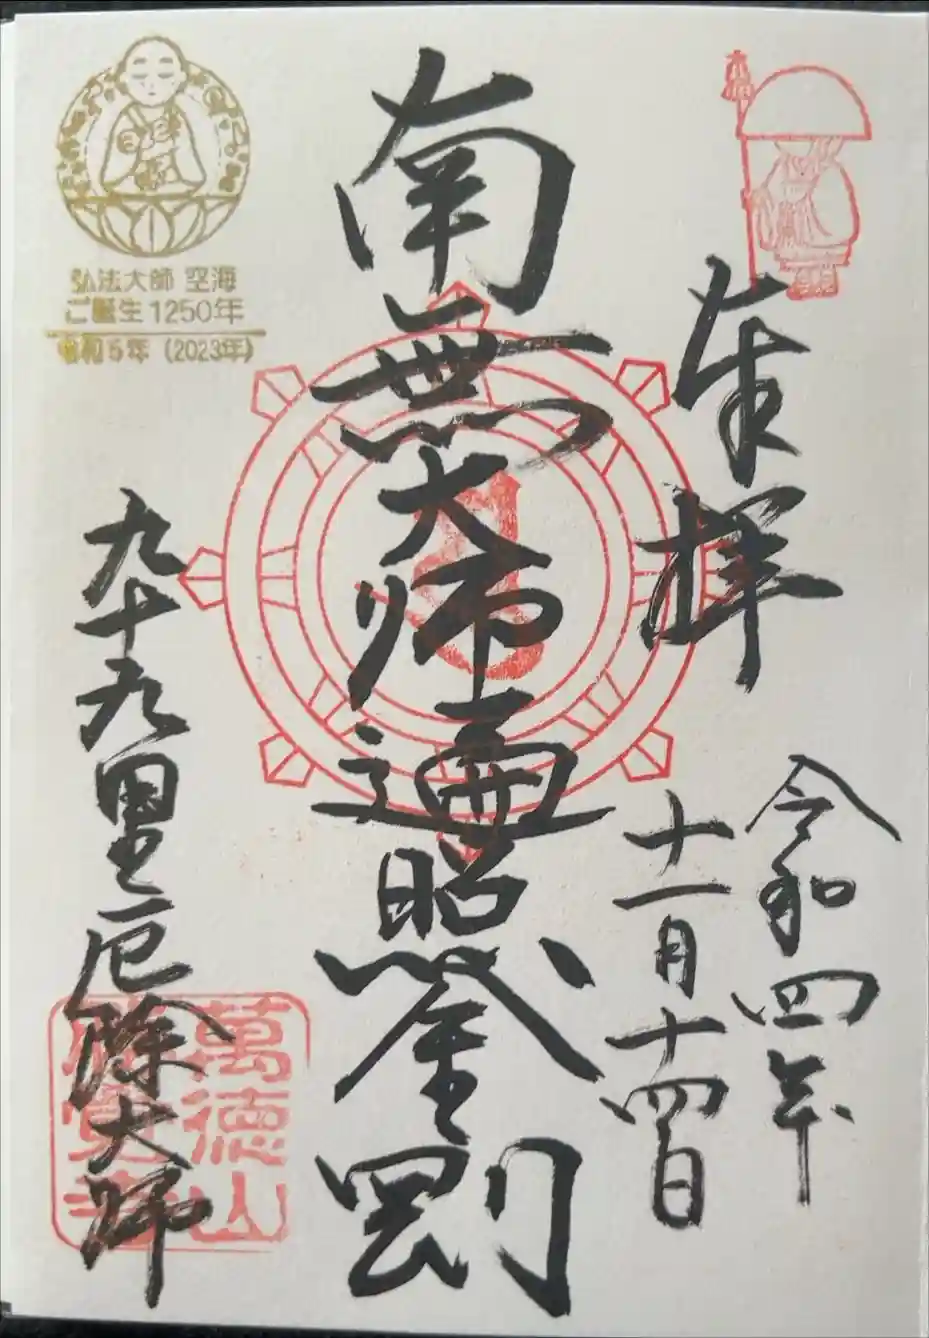 奉拝
令和四年
十一月十四日
南無大師遍照金剛
九十九里厄除大師
弘法大師 空海
ご誕生1250年
令和5年(2023年)
萬徳山